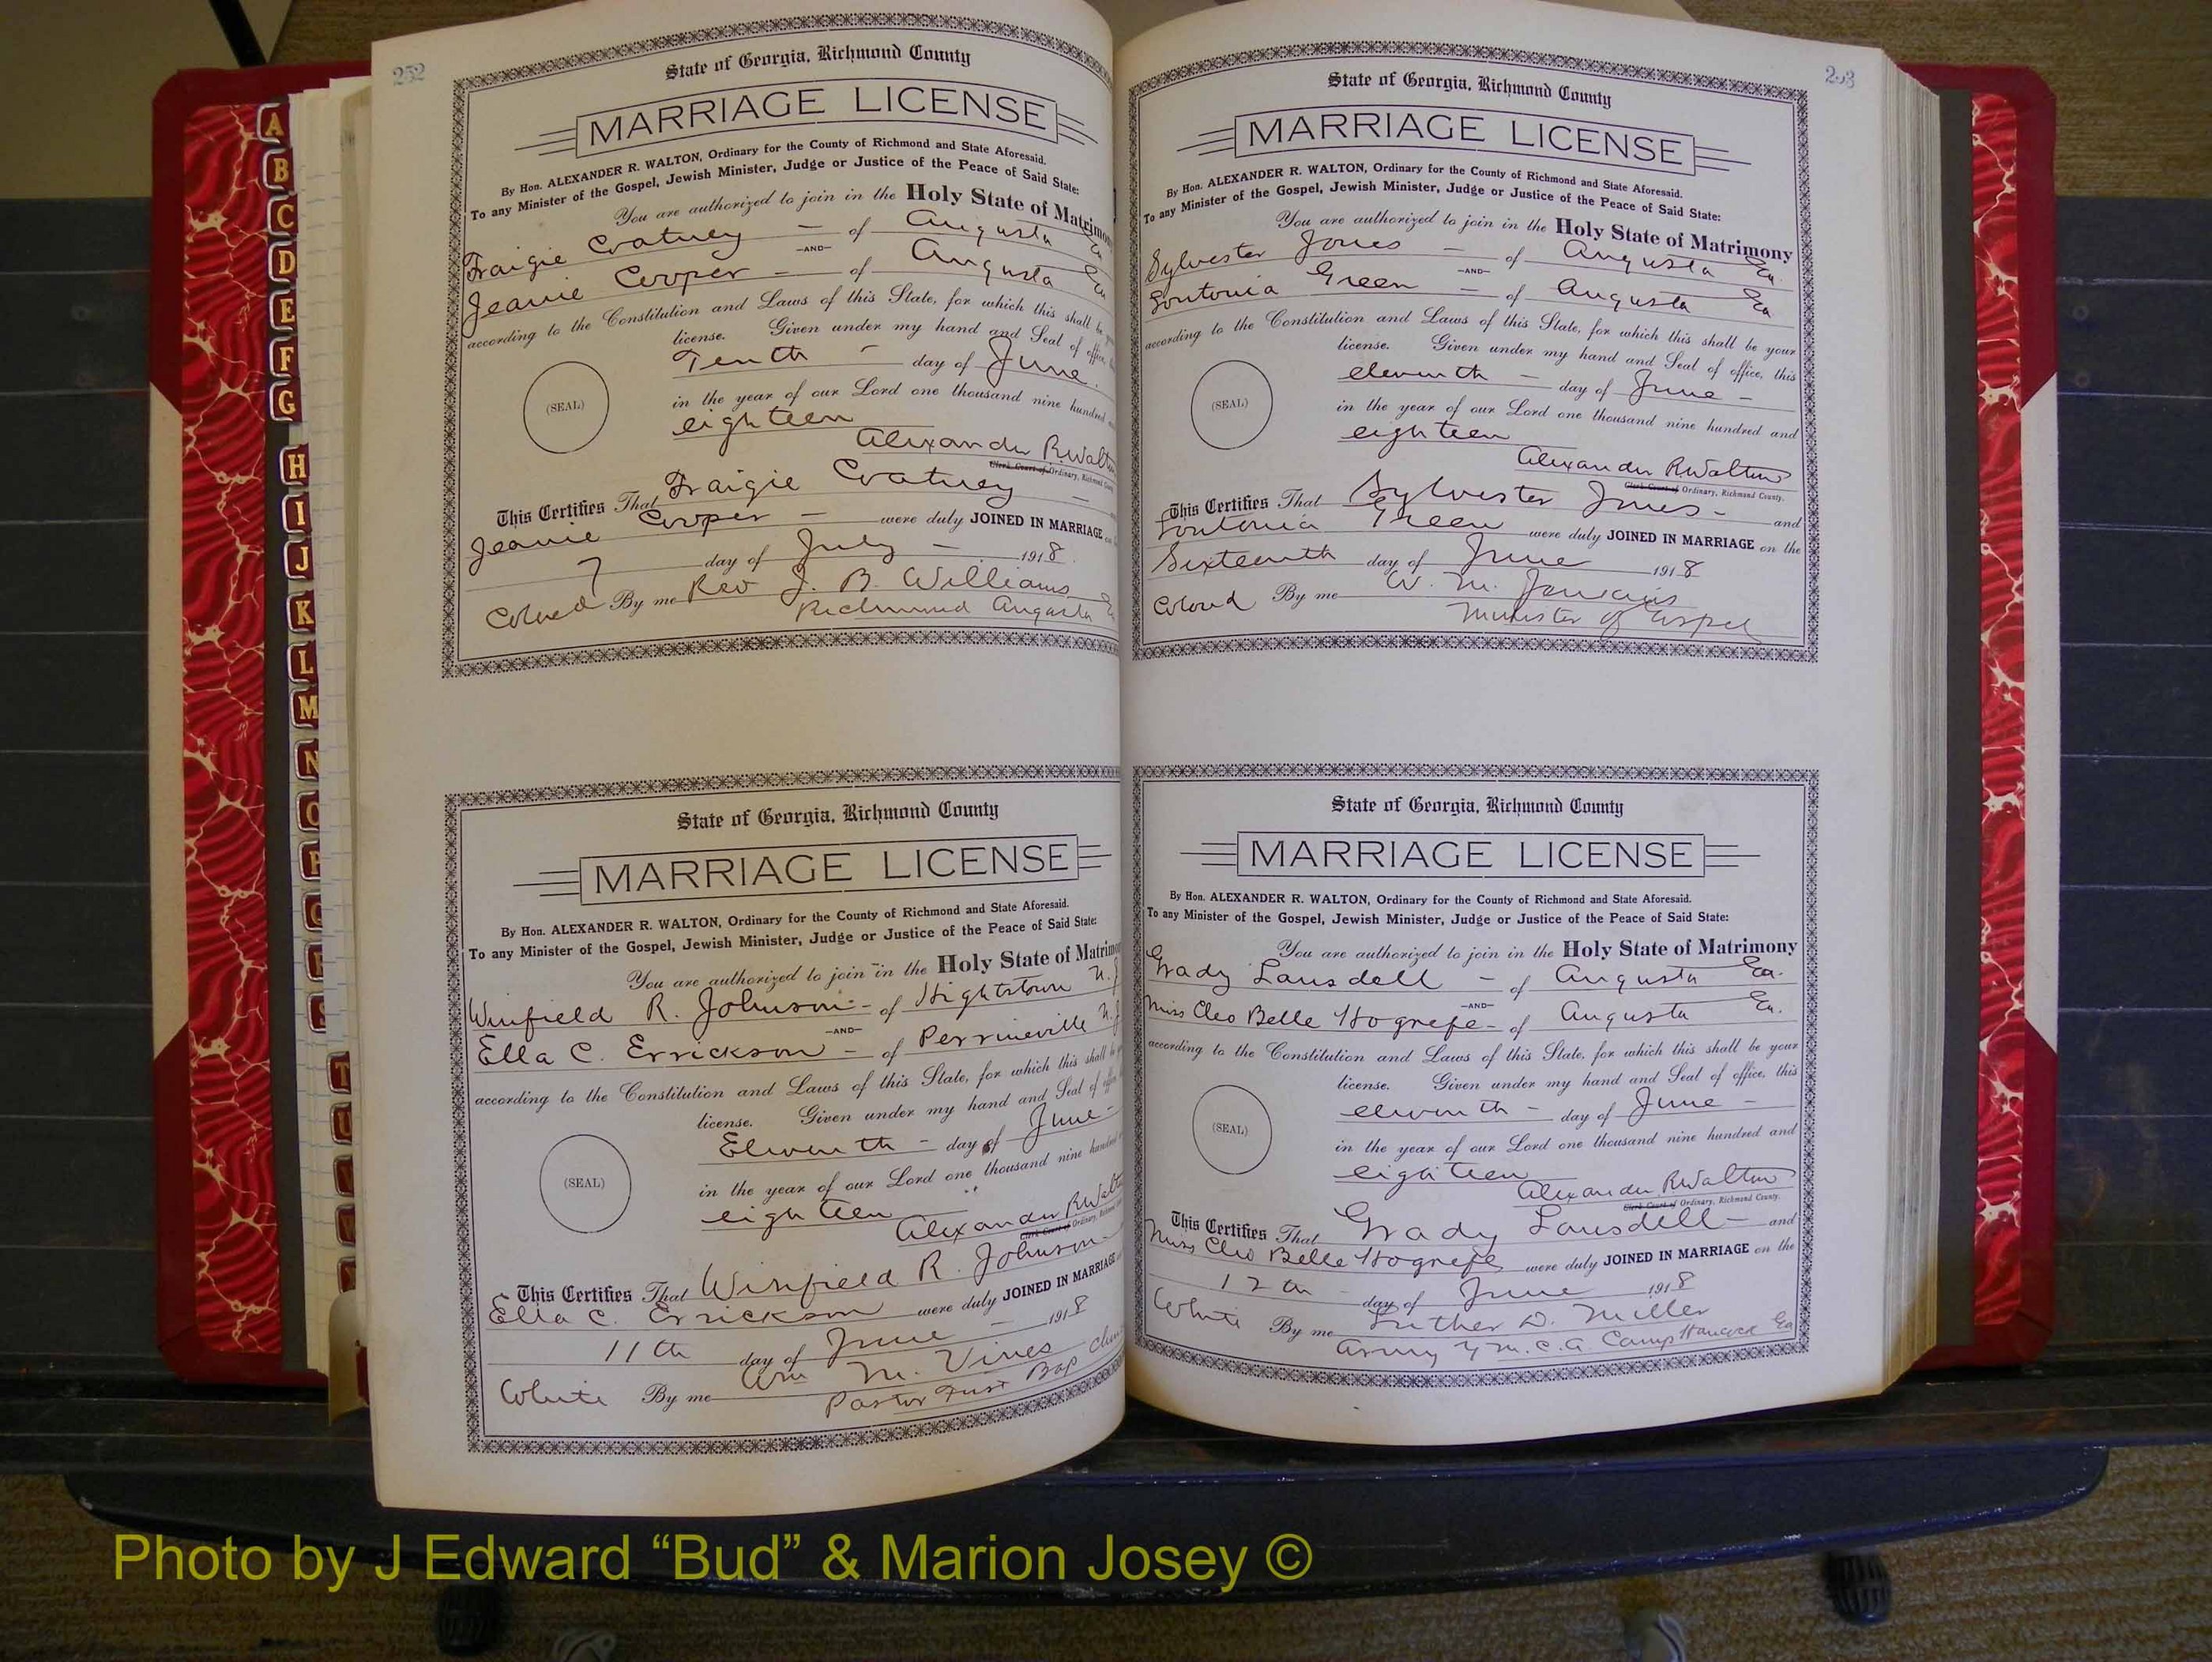 252
State of Georgia, Richmond County
MARRIAGE LICENSE
By Hon. ALEXANDER R. WALTON, Ordinary for the County of Richmond and State Aforesaid.
To any Minister of the Gospel, Jewish Minister, Judge or Justice of the Peace of Said State:
You are authorized to join in the Holy State of Matrimony
Fraigie Coatney — of Augusta Ga
—AND—
Jeanie Cooper — of Augusta Ga
according to the Constitution and Laws of this State, for which this shall be
license. Given under my hand and Seal of office,
Tenth — day of June
(SEAL)
in the year of our Lord one thousand nine hundred
eighteen
Alexander R Walton
Clerk Court of Ordinary, Richmond
This Certifies That Fraigie Coatney —
Jeanie Cooper — were duly JOINED IN MARRIAGE
7 day of July — 1918
Colored By me Rev J. B. Williams
Richmond Augusta Ga
State of Georgia, Richmond County
MARRIAGE LICENSE
By Hon. ALEXANDER R. WALTON, Ordinary for the County of Richmond and State Aforesaid.
To any Minister of the Gospel, Jewish Minister, Judge or Justice of the Peace of Said State:
You are authorized to join in the Holy State of Matrimony
Winfield R. Johnson — of Hightstown N.J
—AND—
Ella C. Errickson — of Perrineville N.J
according to the Constitution and Laws of this State, for which this shall be
license. Given under my hand and Seal of office
Eleventh — day of June —
(SEAL)
in the year of our Lord one thousand nine hundred
eighteen
Alexander R Walton
Clerk Court of Ordinary, Richmond
This Certifies That Winfield R. Johnson —
Ella C. Errickson were duly JOINED IN MARRIAGE
11th day of June — 1918
White By me Wm M. Vines
Pastor First Bap
253
State of Georgia, Richmond County
MARRIAGE LICENSE
By Hon. ALEXANDER R. WALTON, Ordinary for the County of Richmond and State Aforesaid.
To any Minister of the Gospel, Jewish Minister, Judge or Justice of the Peace of Said State:
You are authorized to join in the Holy State of Matrimony
Sylvester Jones — of Augusta Ga.
—AND—
Green — of Augusta Ga
according to the Constitution and Laws of this State, for which this shall be your
license. Given under my hand and Seal of office, this
eleventh — day of June —
(SEAL)
in the year of our Lord one thousand nine hundred and
eighteen
Alexander R Walton
Clerk Court of Ordinary, Richmond County.
This Certifies That Sylvester Jones — and
Green were duly JOINED IN MARRIAGE on the
Sixteenth day of June 1918
Colored By me W. M.
Minister of Gospel
State of Georgia, Richmond County
MARRIAGE LICENSE
By Hon. ALEXANDER R. WALTON, Ordinary for the County of Richmond and State Aforesaid.
To any Minister of the Gospel, Jewish Minister, Judge or Justice of the Peace of Said State:
You are authorized to join in the Holy State of Matrimony
Grady Lansdell — of Augusta Ga.
—AND—
Miss Cleo Belle Hogrefe — of Augusta Ga.
according to the Constitution and Laws of this State, for which this shall be your
license. Given under my hand and Seal of office, this
eleventh — day of June —
(SEAL)
in the year of our Lord one thousand nine hundred and
eighteen
Alexander R Walton
Clerk Court of Ordinary, Richmond County.
This Certifies That Grady Lansdell — and
Miss Cleo Belle Hogrefe were duly JOINED IN MARRIAGE on the
12th day of June 1918
White By me Luther D. Miller
Army Y.M.C.A. Camp Hancock Ga
A
B
C
D
E
F
G
H
I
J
K
L
M
N
O
P
Q
R
S
T
U
V
Photo by J Edward “Bud” & Marion Josey ©